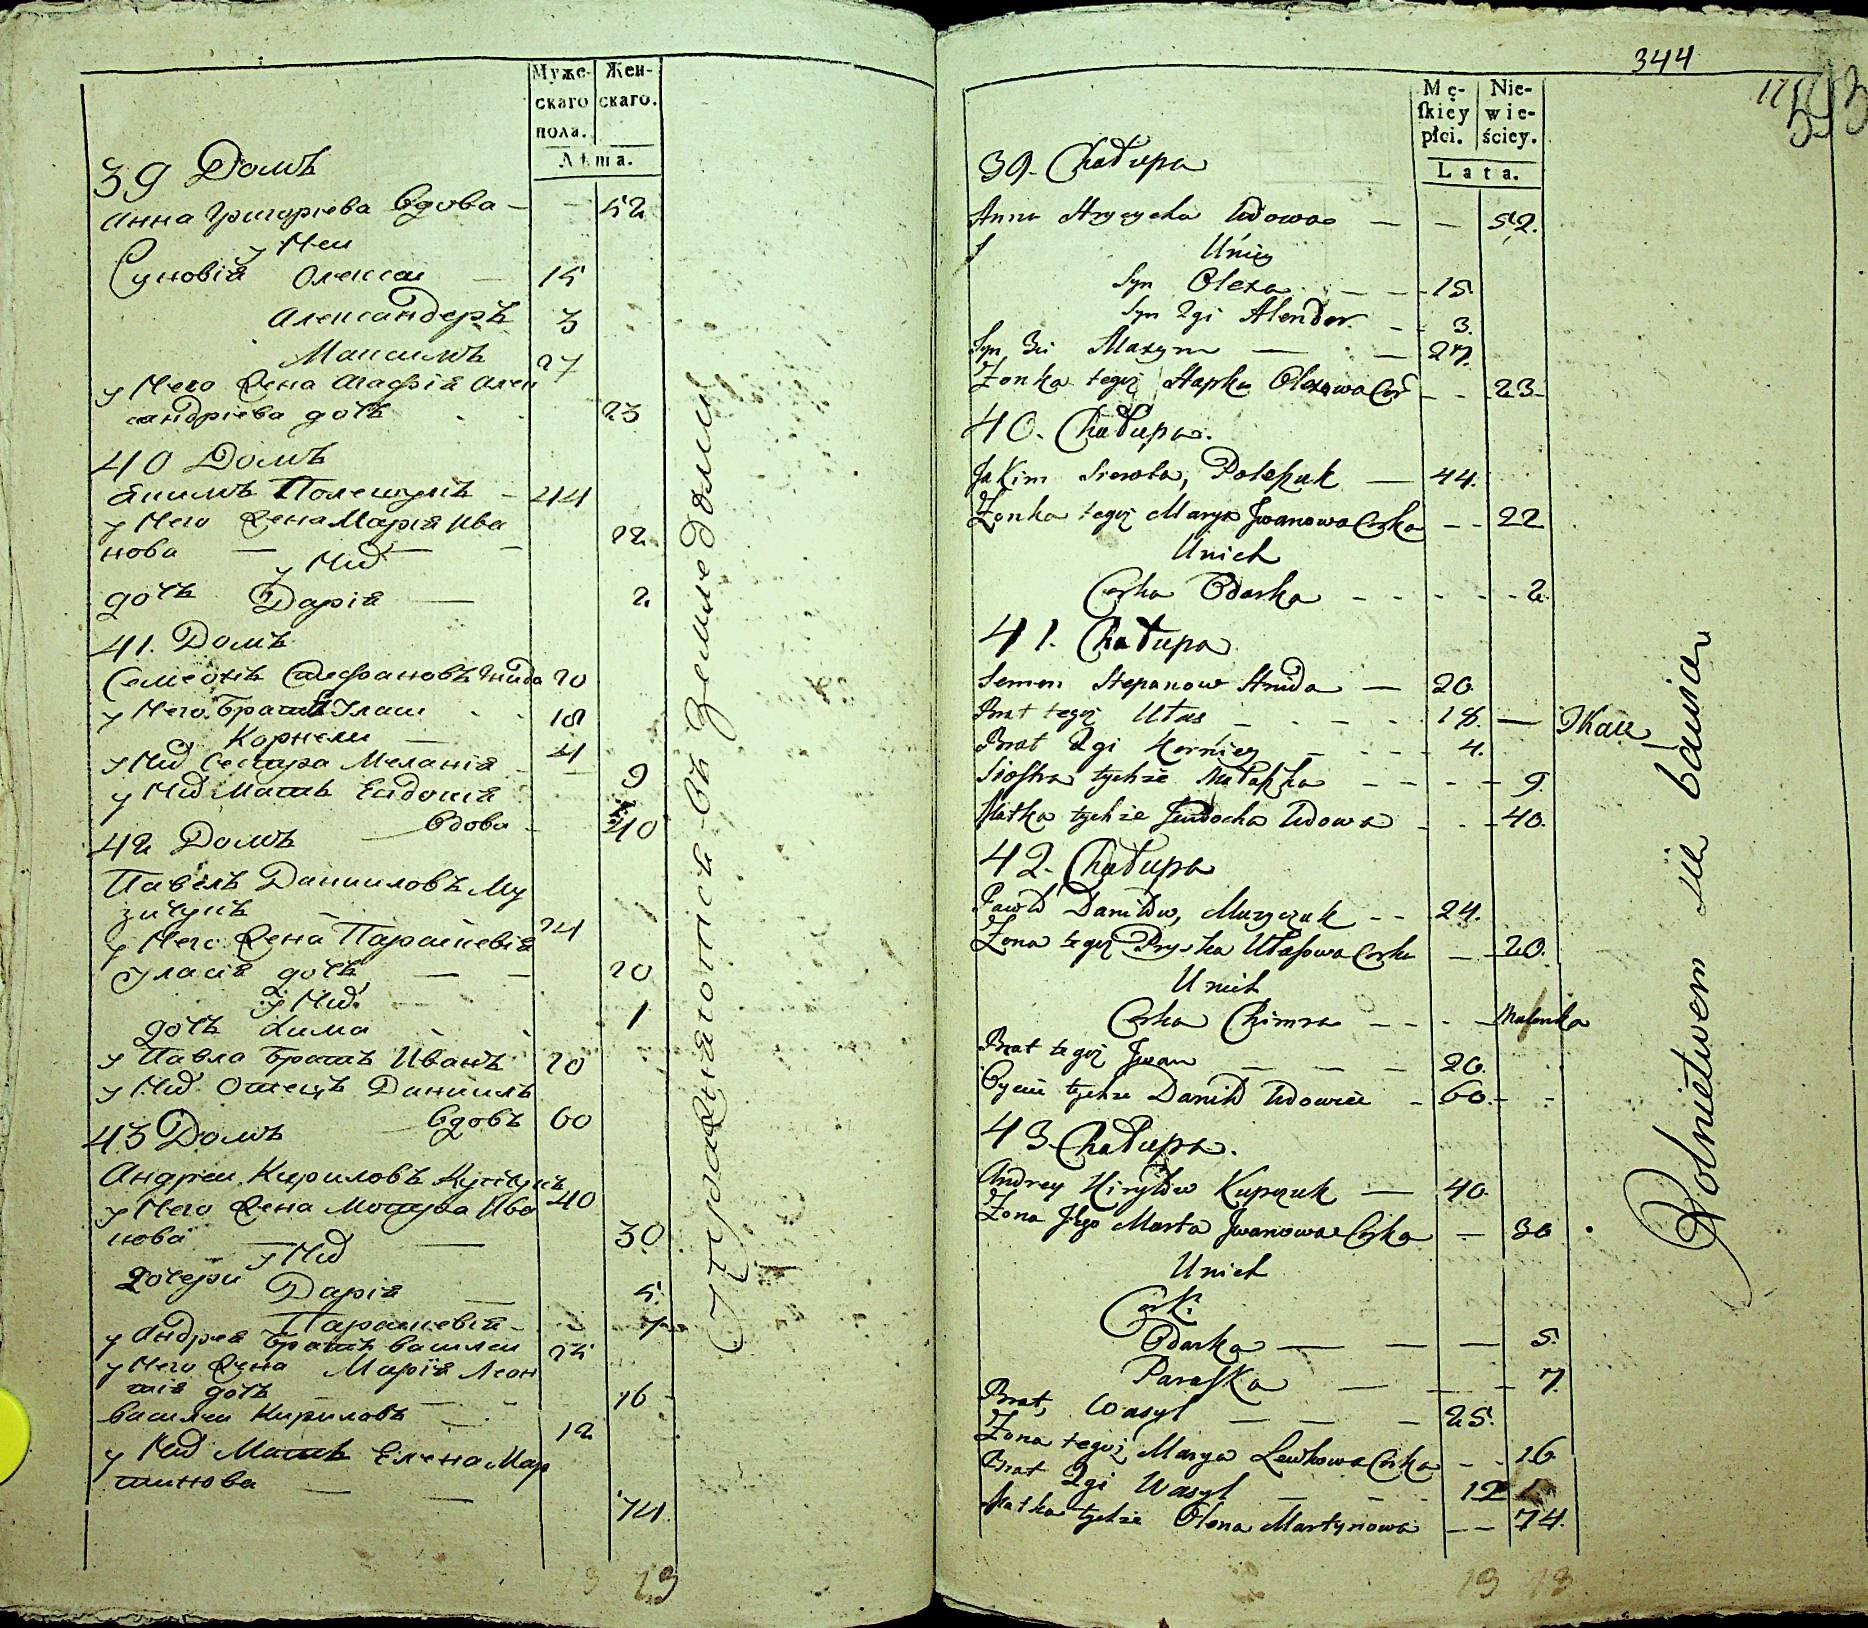 Муже- Жен-
скаго скаго.
пола.
Лѣта.
39 Домъ
Анна Григориева вдова - - 52
у Неи
Сыновія Олексеи - 15
Александеръ 3
Максимъ 27
у Него Жена Агафія Алек
сандріева дочь 23
40 Домъ
Якимъ Полещукъ - 44
у Него Жена Марія Ива
нова — — - 22
у Них
дочь Дарія — 2
41. Домъ
Семеонъ Стефановъ Гнида 20
у Него братъ Улас 18
Корнеи — 4
у Них Сестра Меланія - - 9
у Них Мать Евдокія
вдова - 40
42 Домъ
Павелъ Данииловъ Му
зичукъ 24
у Него Жена Параскевія
Уласія дочь — - 20
у Них
дочь Хима 1
у Павла братъ Иванъ 20
у Них Отецъ Даниилъ
вдовъ 60
43 Домъ
Андреи Кириловъ Купчукъ 40
у Него Жена Мотрва Ива
нова — — 30
у Них
Дочери Дарія — 5
Параскевія - 7
у Андрея братъ Василеи 25
у Него Жена Марія Леон
тія дочь — 16
Василеи Кириловъ — 12
у Них Мать Елена Мар
тинова — — 74
Упражняются въ Земледѣліи
13 13
344
Mę- Nie-
ſkiey wie-
płci. ściey.
Lata.
39. Chałupa
Anna Hrycycha Wdowa — — 52.
U niey
Syn Olexa — — 15
Syn 2gi Alexder - - 3.
Syn 3ci Maxym — — 27.
Żonka tegoż Hapka Olexowa Cor - - 23
40. Chałupa.
Jakim Sierota, Poleszuk — 44.
Żonka tegoż Marya Jwanowa Corka - - 22
U nich
Corka Odarka - - - - - 2
41. Chałupa
Semen Stepanow Hnida — 20
Brat tegoż Ułas - - - - 18. — Tkacz
Brat 2gi Korniey - - - - 4.
Siostra tychże Małaſzka - - - - 9.
Matka tychże Jewdocha Wdowa - - - 40.
42. Chałupa
Pawło Daniłow, Muzyczuk - - 24.
Żona tegoż Pryska Ułaſowa Corka - - 20.
U nich
Corka Chimra - - - - Malenka
Brat tegoż Jwan — — — 20.
Oyciec tychże Daniło Wdowiec - 60. - -
43. Chałupa.
Andrey Kiryłow Kupczuk — 40.
Żona Jego Marta Jwanowa Corka — 30
U nich
Corki
Odarka — — — 5.
Paraſka — — - 7.
Brat, Wasyl — — - 25.
Żona tegoż Marya Lewkowa Corka - - 16
Brat 2gi Wasyl - - - 12
Matka tychże Olena Martynowa — — 74.
Rolnictwem się bawią
13 13